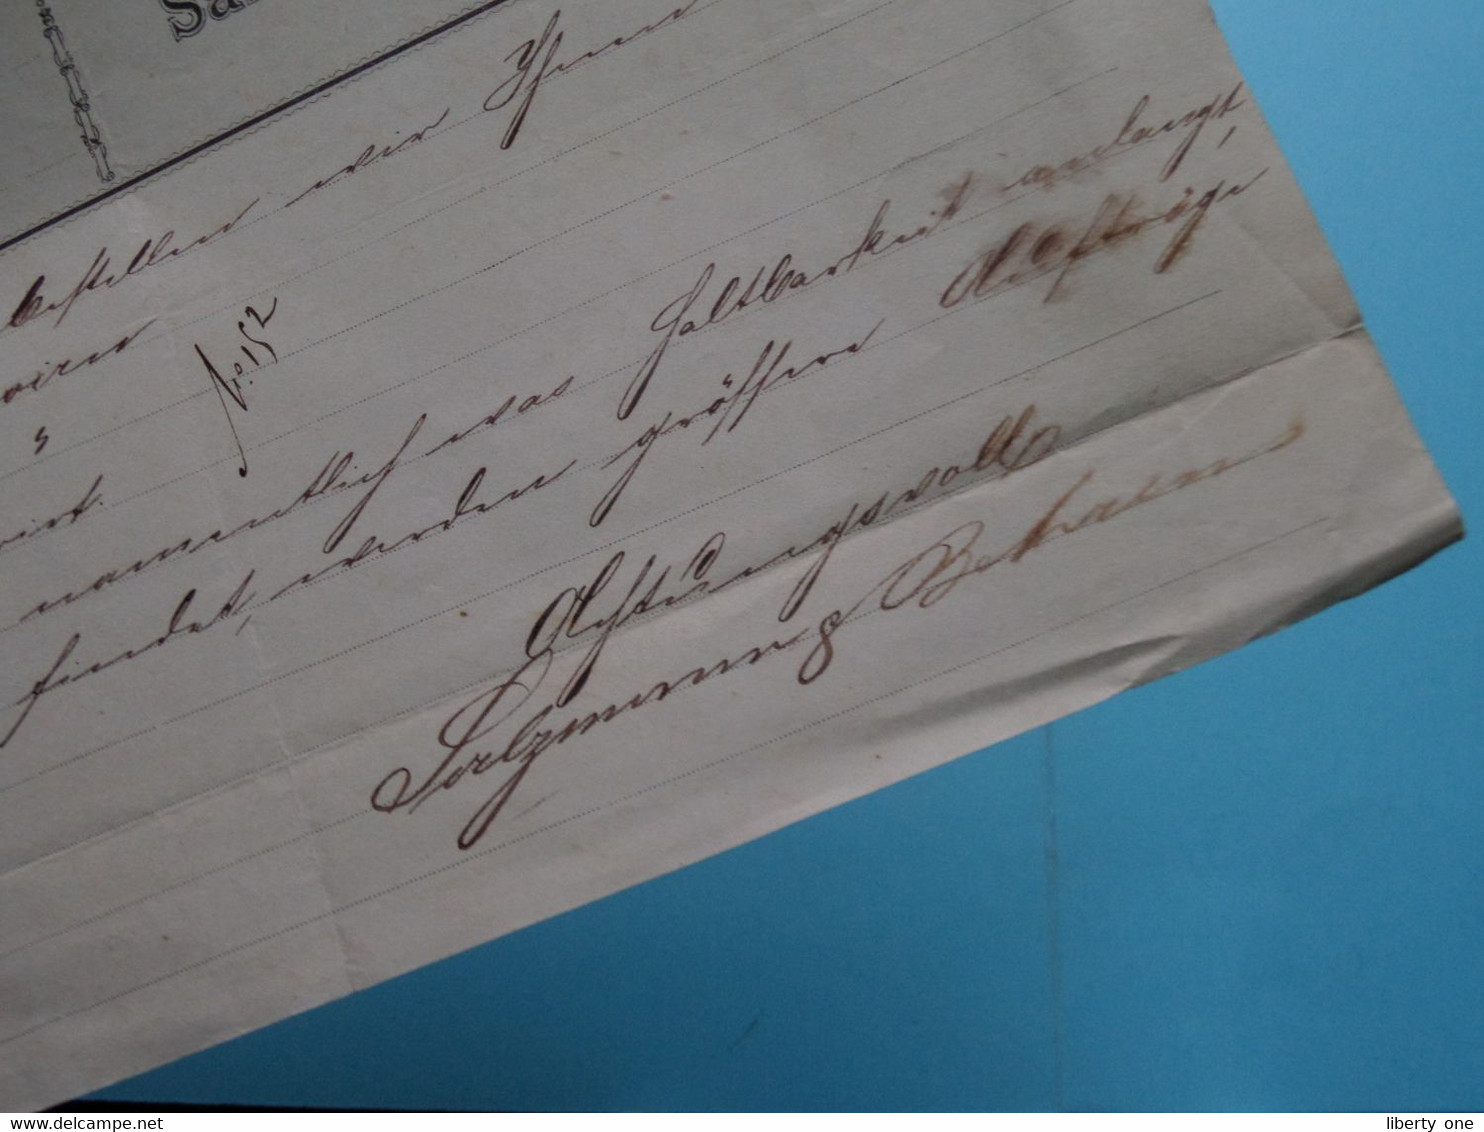 Sa
bestellen wir Ihnen
oiren
" No. 152
namentlich was Haltbarkeit anlangt,
findet, werden grössere Aufträge
Achtungsvoll
Salzmann & Behrens
delcampe.net
liberty one